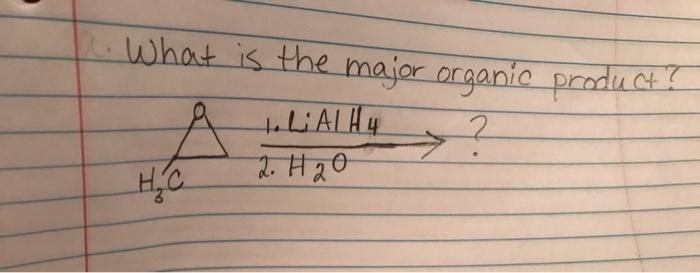 What is the major organic product?
O
1. LiAlH4 ?
H3C 2. H2O